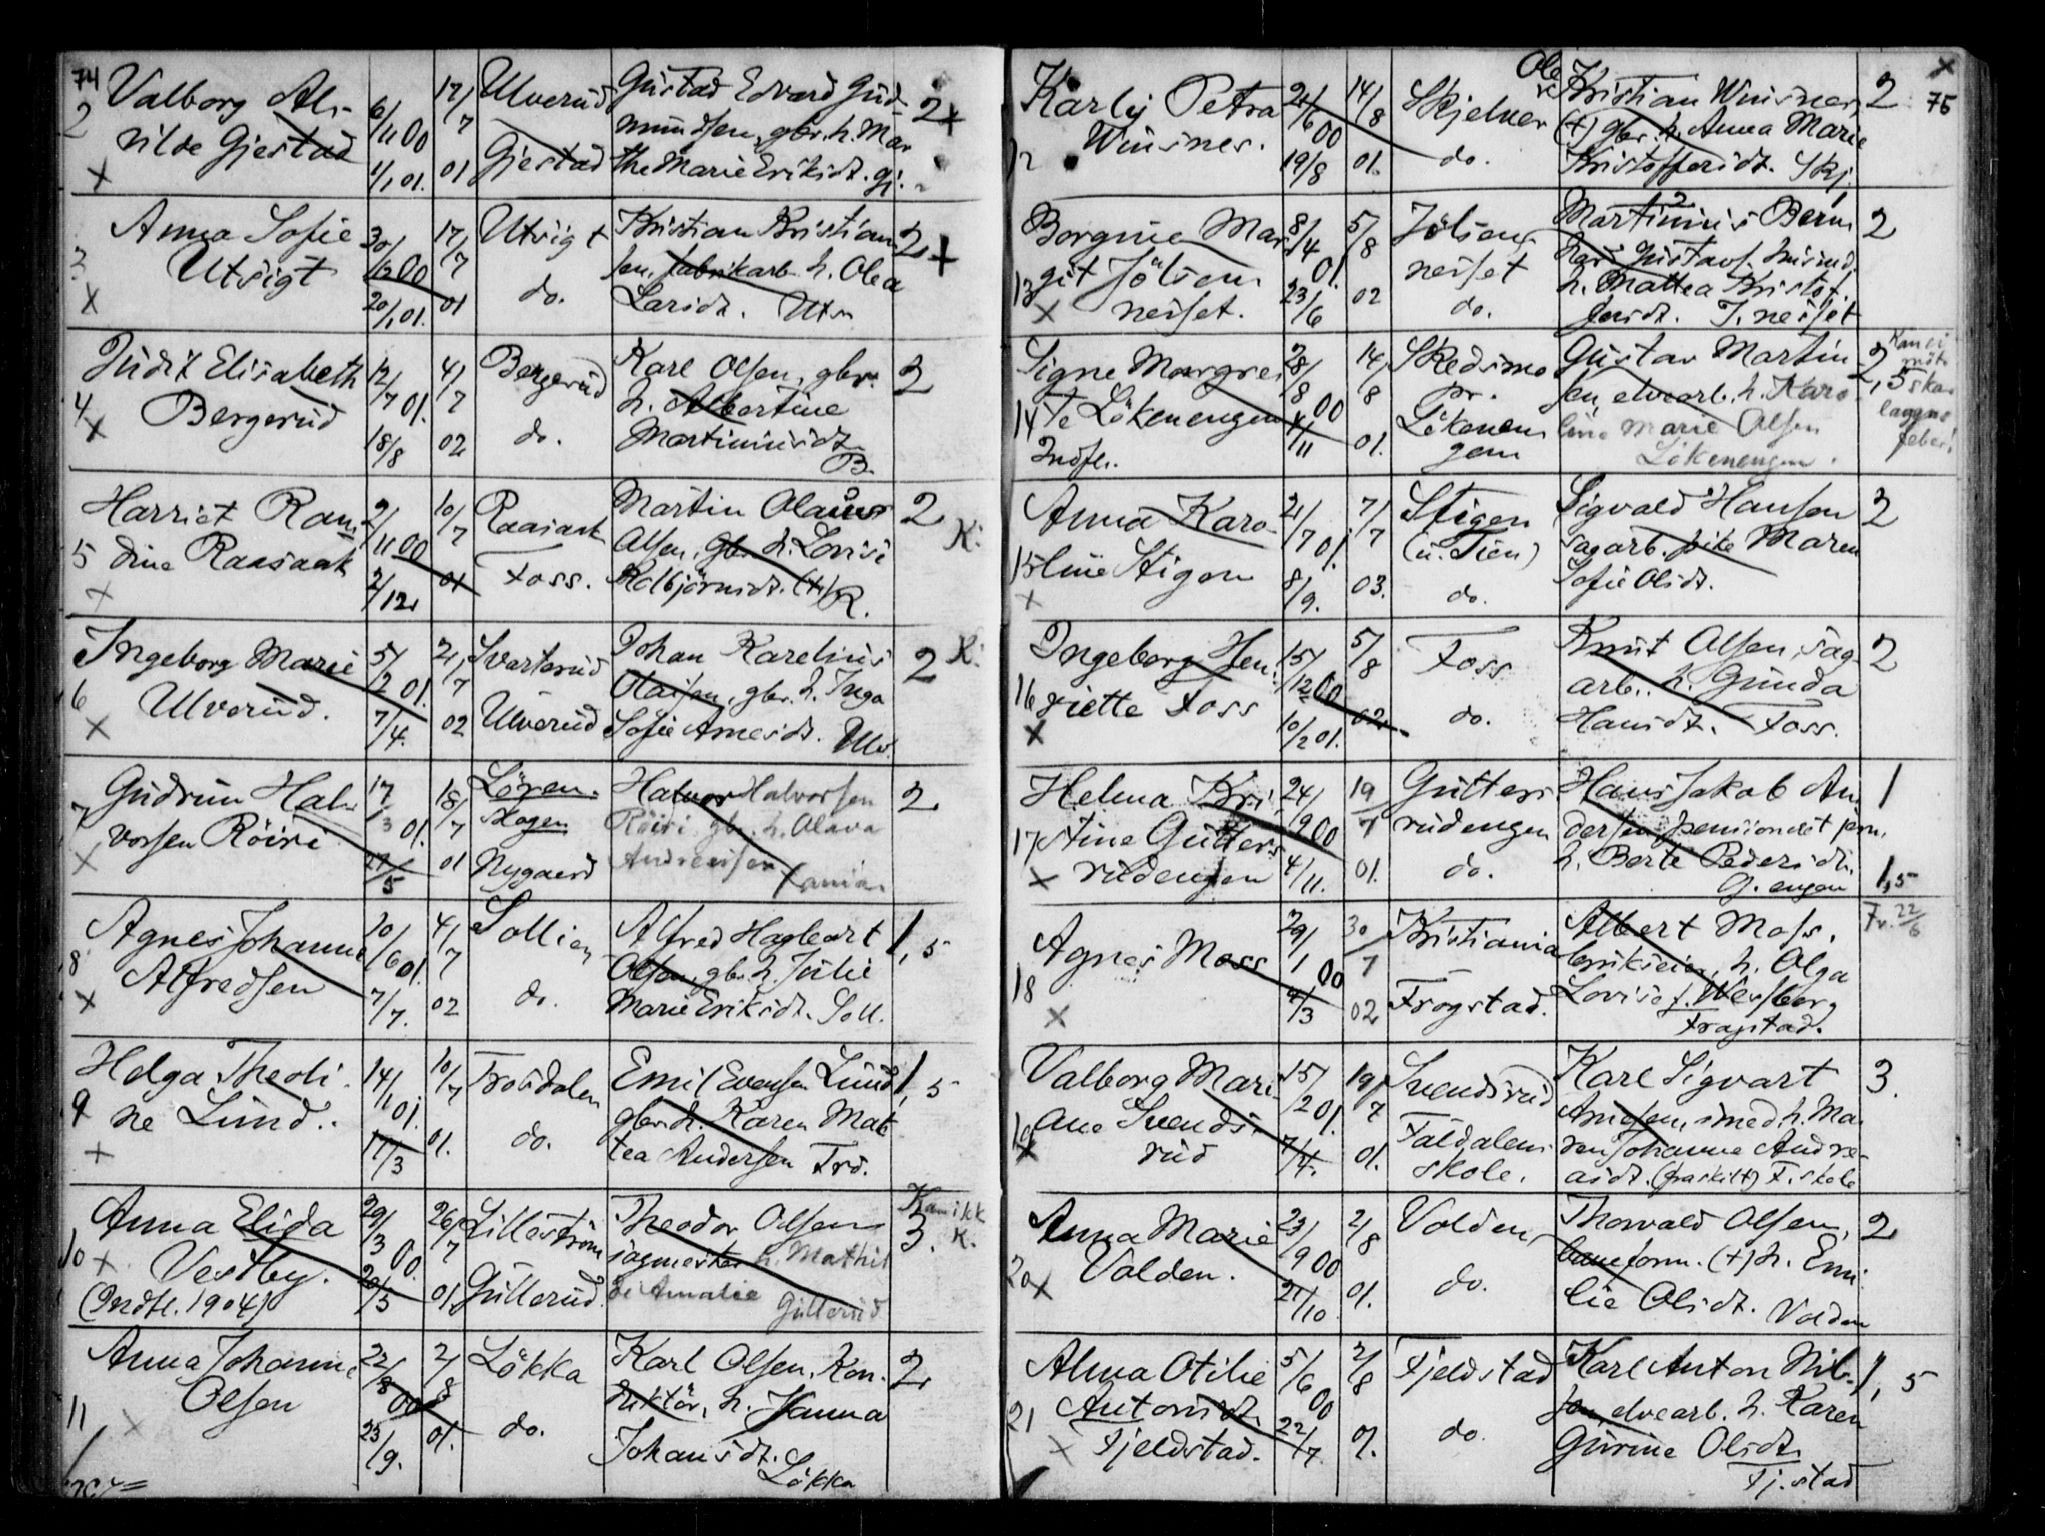 74
2 Valborg Al-
vilde Gjestad
6/11 00
1/1 01.
12/7
01
Ulverud
Gjestad
Gustad Edvard Gud-
mundsen, gbr. h. Mar
the Marie Eriksdt. Gj.
2
3 Anna Sofie
Utsigt
30/12 00
20/1 01.
17/7
01
Utsigt
do.
Kristian Kristian
sen, fabrikarb. h. Olea
Larsdt. Uts.
2
4 Judit Elisabeth
Bergerud
12/7 01.
18/8
4/7
02
Bergerud
do.
Karl Olsen, gbr.
h. Albertine
Martiniusdt.
B.
2
5 Harriet Ran-
dine Raasaak
9/11 00
2/12
10/7
01
Raasaak
Foss.
Martin Olaus
Olsen, gbr. h. Lovise
Kolbjörnsdt. (+) R.
2 K.
6 Ingeborg Marie
Ulverud.
5/2 01.
7/4.
21/7
02
Svarterud
Ulverud
Johan Karelius
Olaisen, gbr. h. Inga
Sofie Arnesdt. Ulv.
2 K.
7 Gudrun Hal-
vorsen Röisi
17/3 01.
27/5
18/7
01
Lögen.
Skogen
Nygaard
Halvor Halvorsen
Röisi gbr. h. Olava
Andreassen
2
8 Agnes Johanne
Alfredsen
20/6 01.
7/7.
4/7
02
Sollien
do.
Alfred Hagbart
Olsen, gbr. h. Julie
Marie Eriksdt. Soll.
1,5
9 Helga Theoli-
ne Lund.
14/1 01.
17/3
10/7
01.
Trosdalen
do.
Emil Evensen Lund
gbr. h. Karen Mat
tea Andersen Tro.
1,5
10 Anna Elida
Vestby.
(Indfl. 1904)
29/3 00.
20/5
26/7
01
Lilleström
Gullerud.
Theodor Olsen
sagmester h. Mathil
de Amalie
Gullerud
3. K.
11 Anna Johanne
Olsen
22/8 00
23/9.
2/8
01.
Lökka
do.
Karl Olsen, Kon-
duktör, h. Hanna
Johansdt.
Lökka
2
75
12 Karly Petra
Wiusnes.
21/6 00
19/8
14/8
01.
Skjelver
do.
Ole
Kristian Wiusnes,
(+) gbr. h. Anna Marie
Kristoffersdt. Skj.
2
13 Borgine Mar
git Jölsen
nesset.
8/4 01.
23/6
5/8
02
Jölsen
nesset
do.
Martinius Bern
hard Gustavs. husmd.
h. Mattea Kristof
fersdt. J. nesset
2
14 Signe Margre
te Lökenengen
Indfl.
28/8 00
4/11
14/8
01.
Skedsmo
pr.
Lökenen
gen
Gustav Martin
sen, elvearb. h. Karo
line Marie Olsen
Lökenengen.
2,5
Kan ei
møte
skar
lagens
feber!
15 Anna Karo-
line Stigen
21/7 01.
8/9.
7/7
03.
Stigen
(u. Tien)
do.
Sigvald Hansen
sagarb. pike Maren
Sofie Olsdt.
2
16 Ingeborg Hen-
riette Foss
15/12 00
10/2 01.
5/8
02
Foss
do.
Knut Olsen, sag-
arb. h. Gunda
Hansdt. Foss.
2
17 Helma Kri-
stine Gutters
rudengen
24/9 00
4/11.
19/7
01.
Gutters-
rudengen
do.
Hans Jakob An
dersen, pensioneret jern.
h. Berte Pedersdt.
G. engen
1
1,5
18 Agnes Moss
29/1 00
4/3
30/7
02
Kristiania
Frogstad.
Albert Moss,
brukseier, h. Olga
Lovise f. Wesberg
Frogstad.
Fr. 22/6
19 Valborg Mari-
ane Svends-
rud
15/2 01.
7/4.
19/7
01.
Svendsrud
Faldalens
skole.
Karl Sigvart
Arnesen, smed h. Ma
ren Johanne Andre-
asdt. (fraskilt) F. skole
3.
20 Anna Marie
Volden.
23/9 00
21/10
2/8
01.
Volden
do.
Thorvald Olsen,
baneform. (+) h. Emi
lie Olsdt. Volden
2
21 Alma Otilie
Antonsdt.
Fjeldstad.
5/6 00
22/7.
2/8
01.
Fjeldstad
do.
Karl Anton Nil-
sen, elvearb. h. Karen
Gurine Olsdt.
Fj. stad
1,5